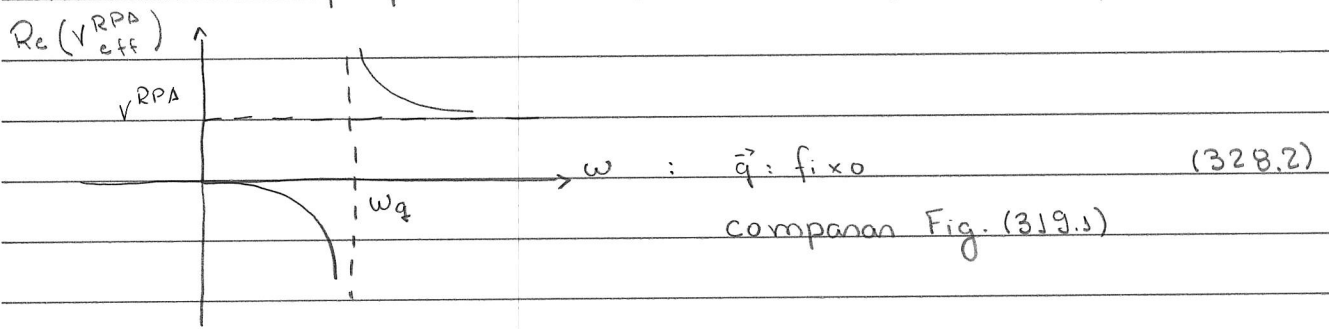 Re(V^{RPA}_{eff})
V^{RPA}
ω : q⃗: fixo (328.2)
ω_q
comparar Fig. (319.1)